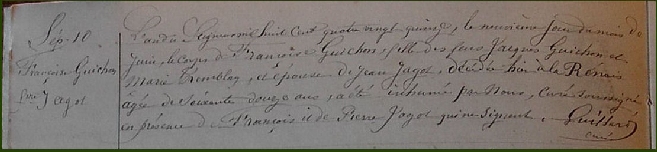 Sép. 10
Françoise Guichon
Jagot
L'an du Seigneur mil huit cent quatre vingt quinze, le neuvième jour du mois de
Juin, le corps de Françoise Guichon, fille des feus Jacques Guichon et
Marie Tremblay, et épouse de Jean Jagot, décédée hier à la Renais
agée de Soixante douze ans, a été inhumé par Nous, curé soussigné
en présence de François et de Pierre Jagot qui ne signent.
Guillard
curé